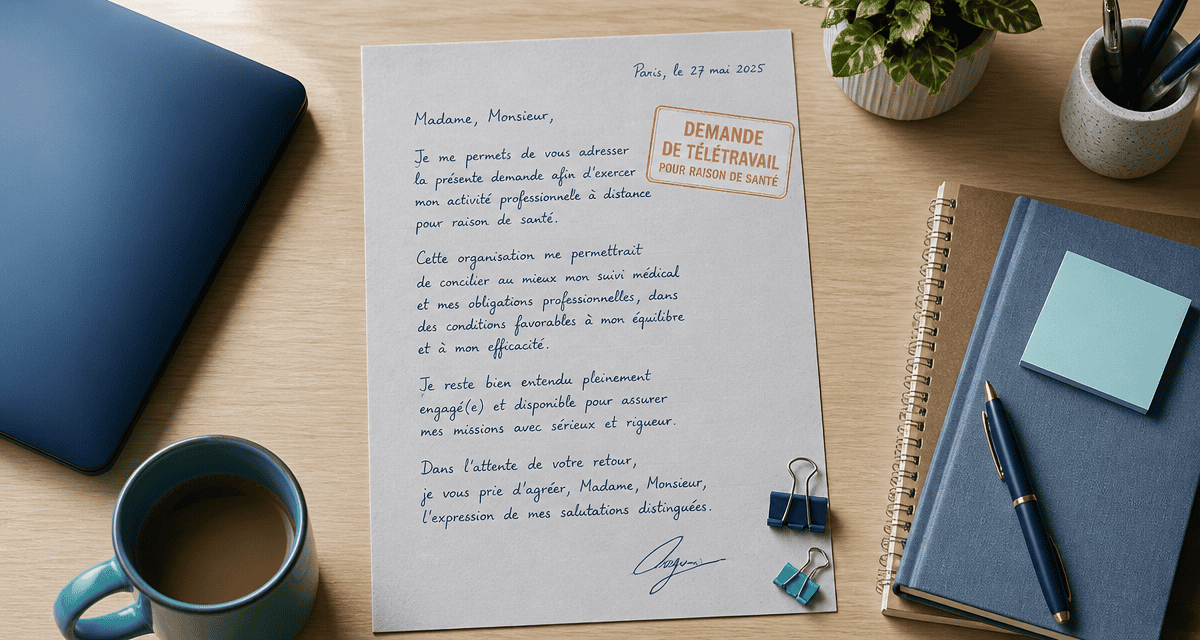 Paris, le 27 mai 2025
Madame, Monsieur,
DEMANDE
DE TÉLÉTRAVAIL
POUR RAISON DE SANTÉ
Je me permets de vous adresser
la présente demande afin d'exercer
mon activité professionnelle à distance
pour raison de santé.
Cette organisation me permettrait
de concilier au mieux mon suivi médical
et mes obligations professionnelles, dans
des conditions favorables à mon équilibre
et à mon efficacité.
Je reste bien entendu pleinement
engagé(e) et disponible pour assurer
mes missions avec sérieux et rigueur.
Dans l'attente de votre retour,
je vous prie d'agréer, Madame, Monsieur,
l'expression de mes salutations distinguées.